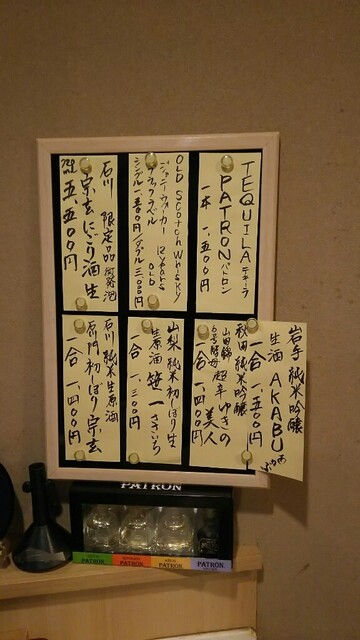 TEQUILA テキーラ
PATRON パトロン
一本 一、五〇〇円
OLD Scotch Whisky
ジョニーウォーカー 12years
ブラックラベル OLD
シングル 一、五〇〇円/ダブル 三、〇〇〇円
石川 限定品 微発泡
宗玄 にごり酒 生
五、五〇〇円
岩手 純米吟醸
生酒 AKABU
一合 一、五〇〇円
秋田 純米吟醸
山田錦
6号酵母 超辛 ゆきの美人
一合 一、四〇〇円
山梨 純米 初しぼり 生
生原酒 笹一 ささいち
一合 一、三〇〇円
石川 純米生原酒
石川門 初しぼり 宗玄
一合 一、四〇〇円
PATRON
PATRON
PATRON
PATRON
PATRON